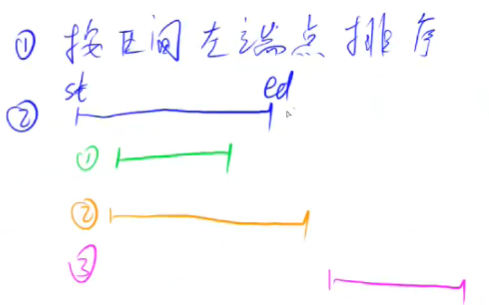 ① 按区间左端点排序
② st ed
①
②
③